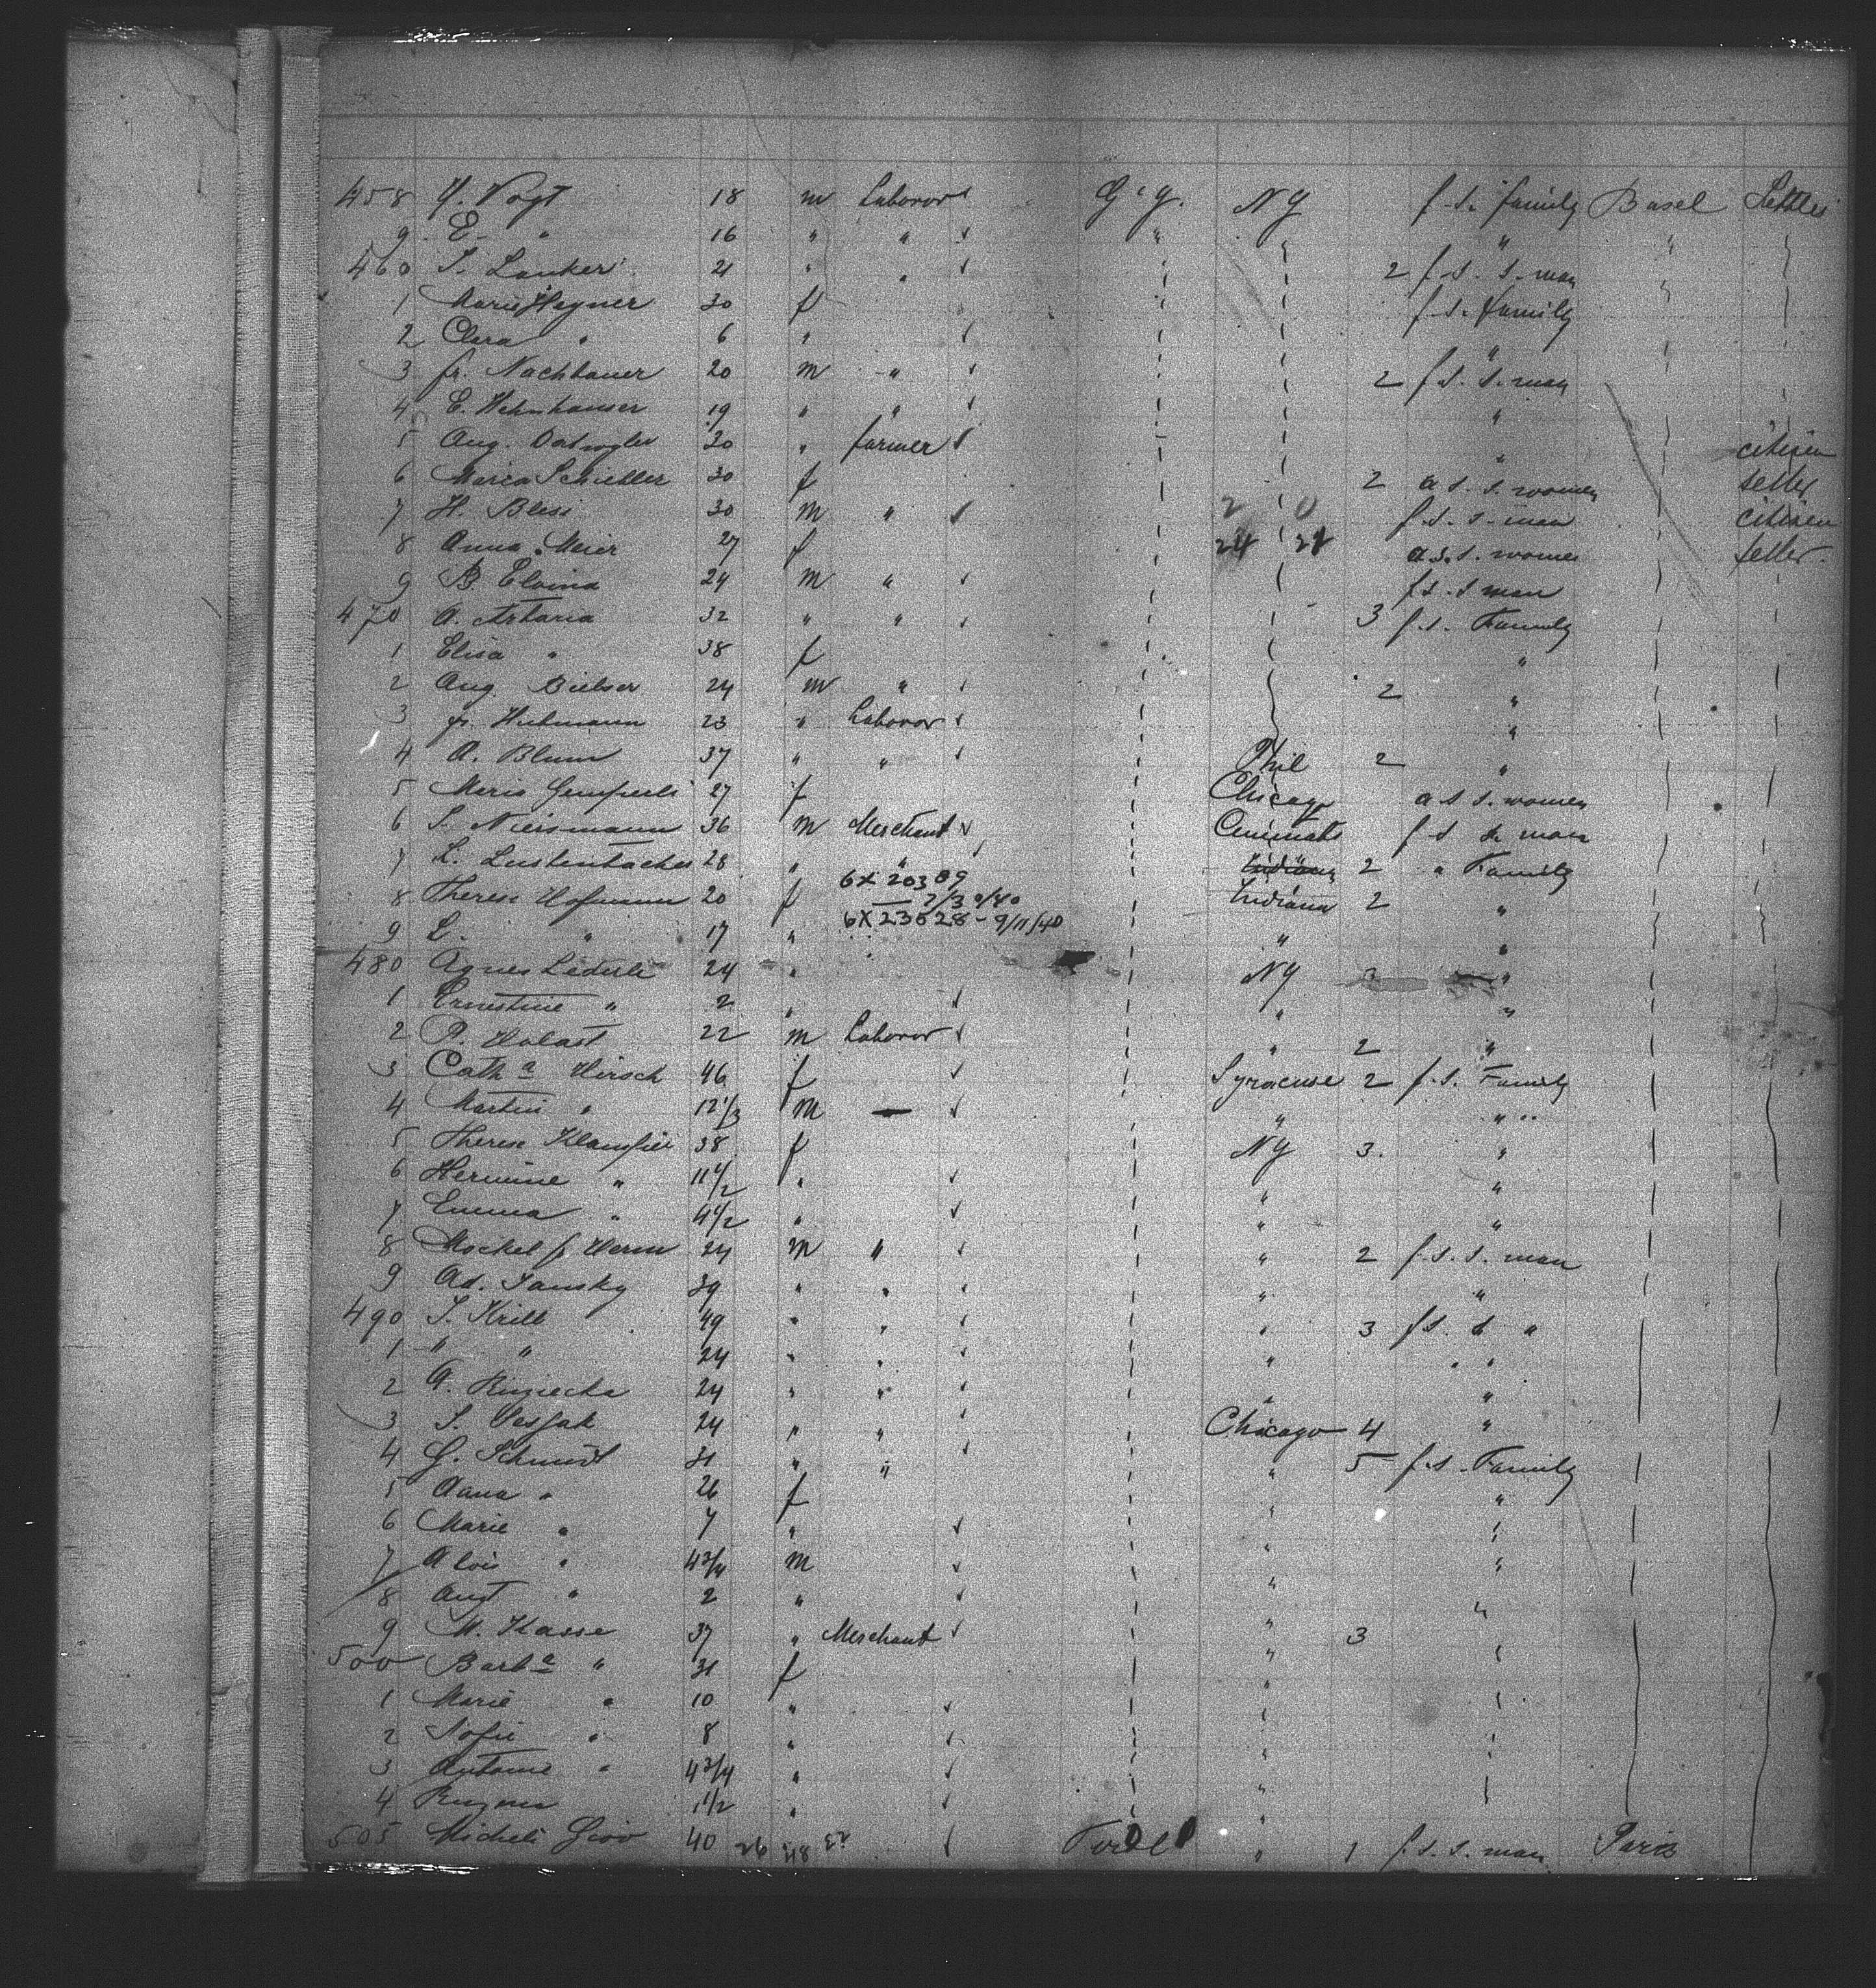 458 H. Vogt 18 m Laboror G'y. NY f. s. family Basel Settler
9 E. " 16 " " " "
460 21 " " 2 f. s. s. man
1 Marie Hegner 30 f f. s. family
2 Clara " 6 " "
3 fr. Nachbauer 20 m " 2 f. s. s. man
4 E. 19 " " "
5 Aug. 30 " farmer " citizen
6 Maria Schiebler 30 f 2 a s. s. women settler
7 H. Blesi 30 m " 2 0 f. s. s. man citizen
8 Anna Meier 27 f 24 21 a. s. s. women settler.
9 B. Elvina 24 m " f s. s man
470 A. Astaria 32 " " 3 f. s. Family
1 Elisa " 38 f "
2 Aug. Bielser 24 m " 2 "
3 fr. Hubmann 23 " Laboror "
4 A. Blum 37 " " Phil 2 "
5 Maria 27 f Chicago a s s. women
6 S. Niersmann 36 m Merchant f s s. man
7 L. Lustenbacher 28 " " Indiana 2 " Family
6X 20309
8 Therese Hofmann 20 f 7/30/40 Indiana 2 "
6X23528 - 9/11/40
9 L. " 17 " " "
480 Agnes Lederle 24 " NY 3 "
1 Ernestine " 2 " " "
2 P. 22 m Laboror " 2 "
3 Cath a Hirsch 46 f Syracuse 2 f. s. Family
4 Martin " 12 1/3 m — " "
5 Therese 38 f NY 3. "
6 Hermine " 11 1/2 " " "
7 Emma " 4 1/2 " " "
8 24 m " " 2 f. s. s. man
9 Ad. Jansky 39 " " " "
490 J. Krill 49 " " " 3 f s. s "
1 " " 24 " " " "
2 Ruziecka 24 " " " "
3 24 " " Chicago 4 "
4 G. Schmidt 31 " " " 5 f. s. Family
5 Anna " 26 f " "
6 Marie " 7 " "
7 Alois " 4 3/4 m " "
8 Aug " 2 " " "
9 M. Kasse 37 " Merchant " 3
500 Barb a " 31 f "
1 Marie " 10 " "
2 Sofie " 8 " "
3 Antonie " 4 3/4 " "
4 1 1/2 " "
505 Micheli 40 26 " 1 f. s. s. man Paris